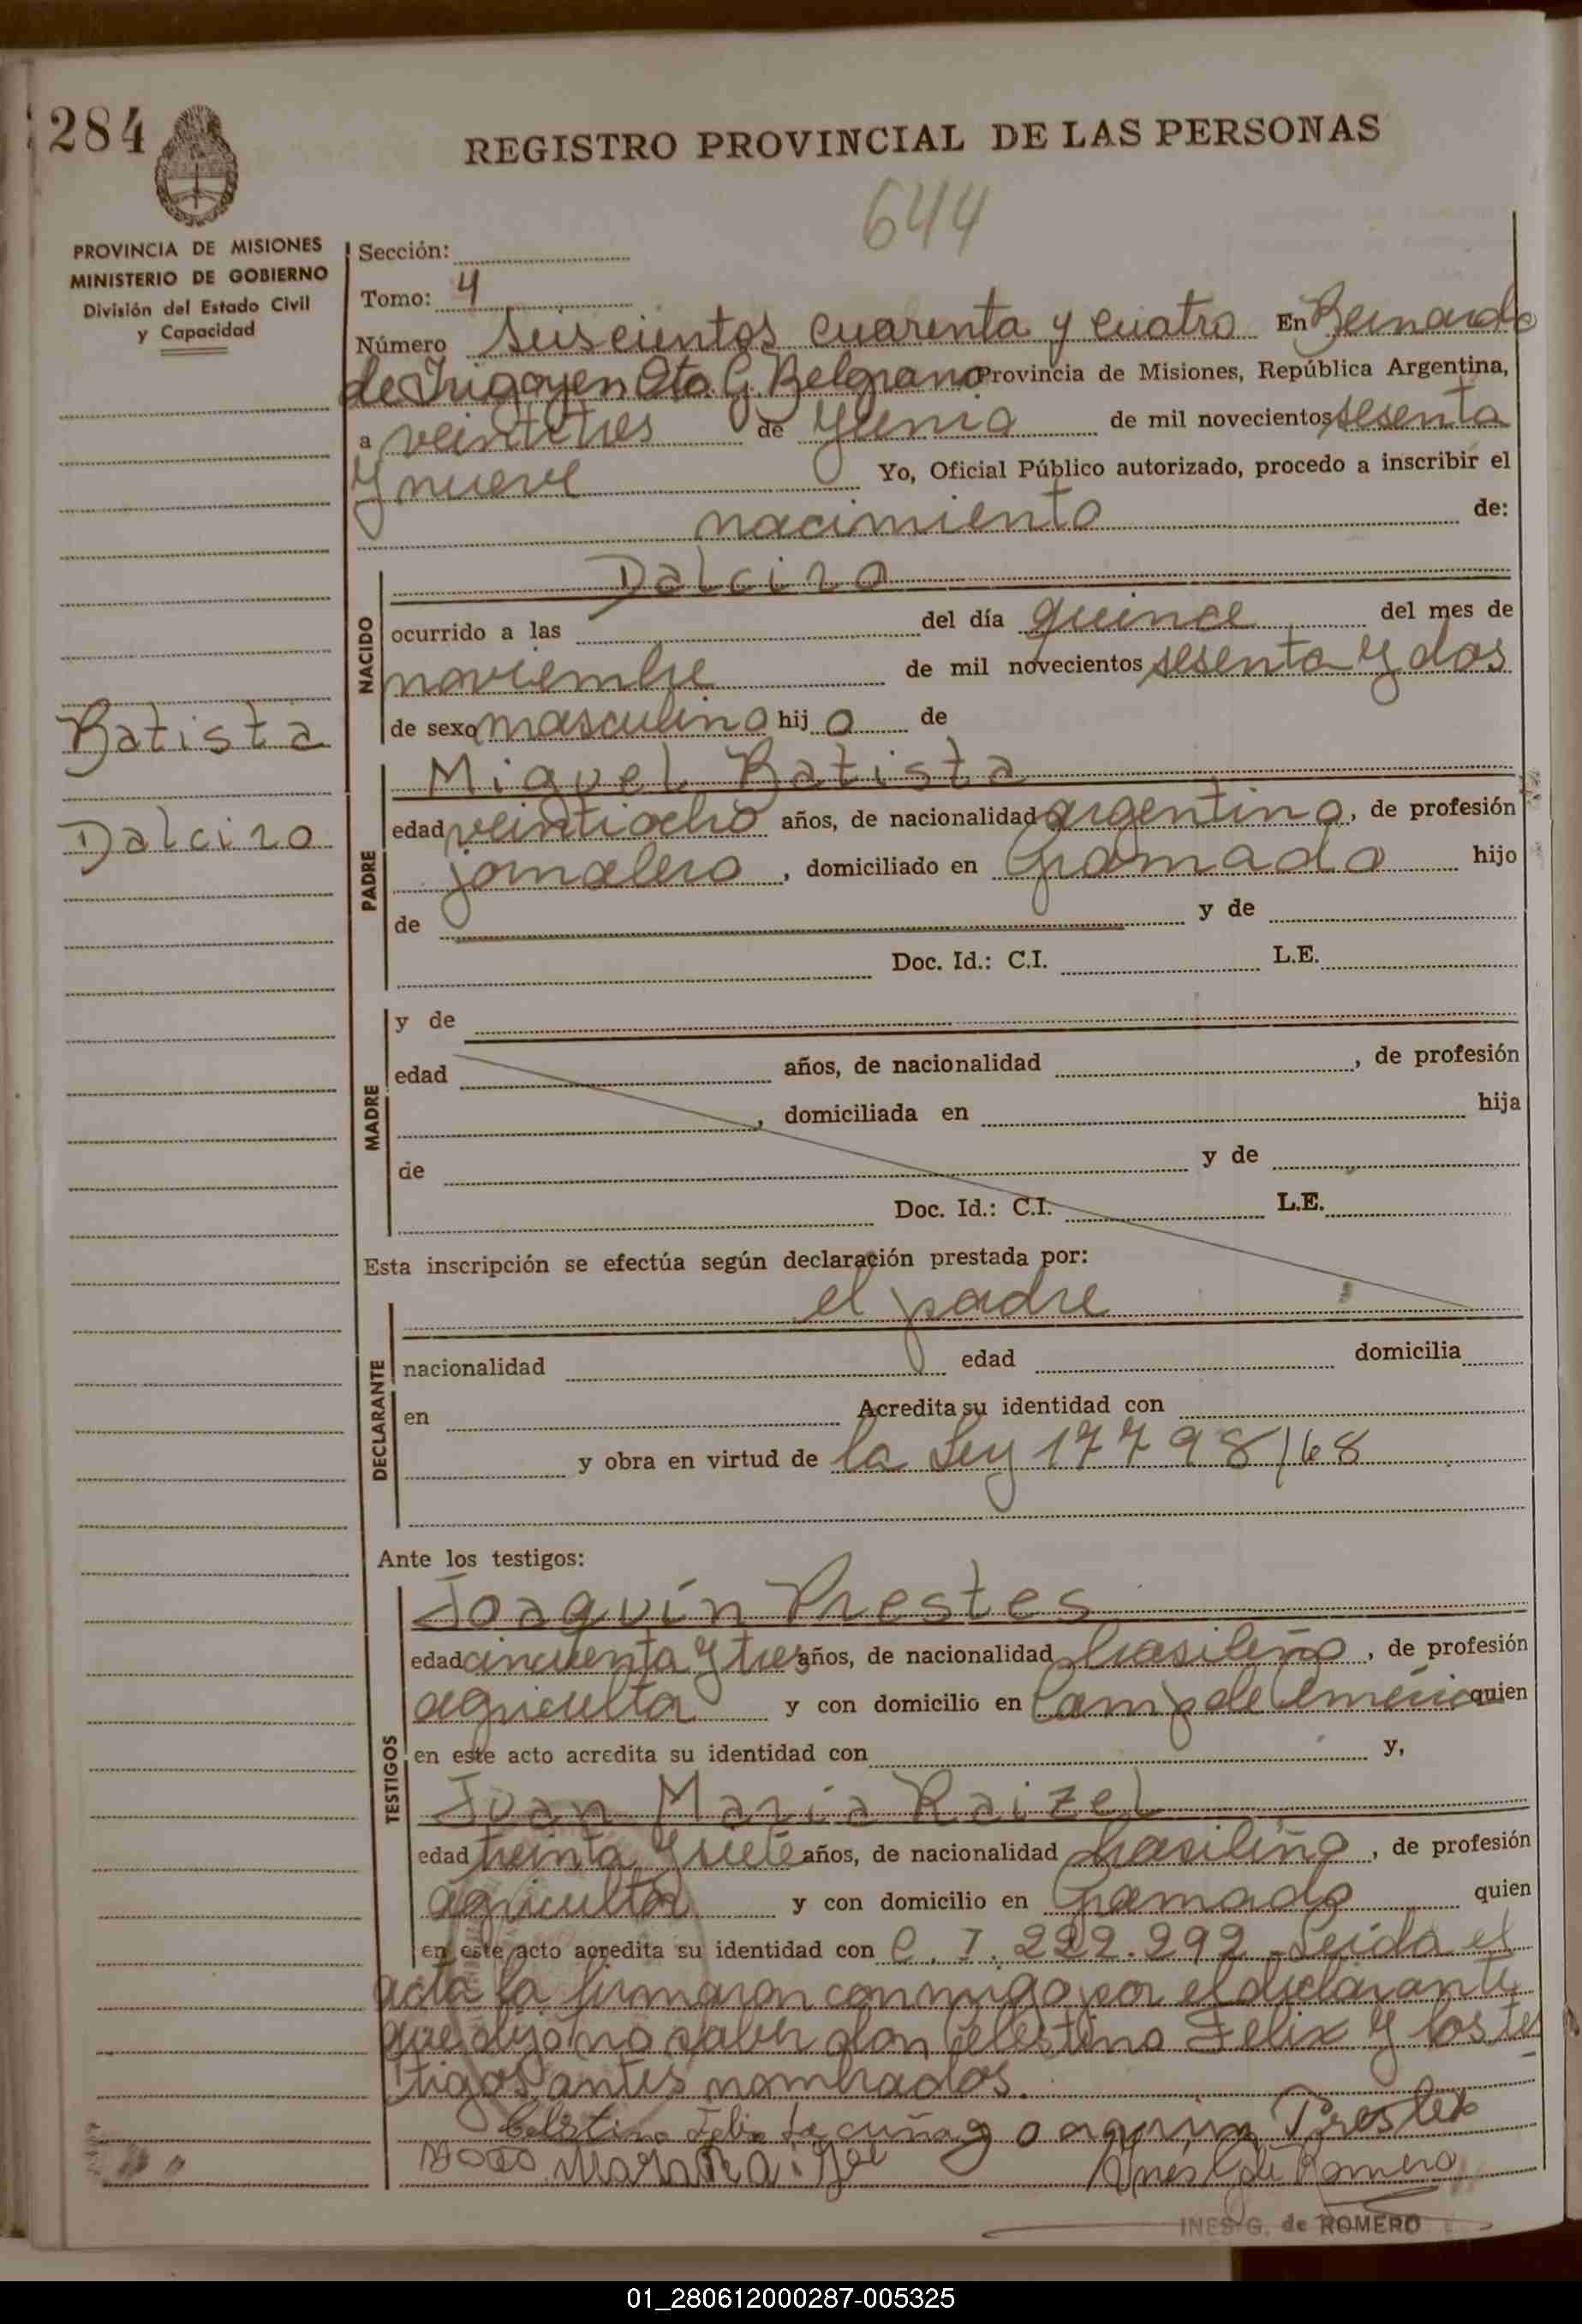 284
REGISTRO PROVINCIAL DE LAS PERSONAS
644
PROVINCIA DE MISIONES
MINISTERIO DE GOBIERNO
División del Estado Civil
y Capacidad
Sección:
Tomo: 4
Número Seiscientos cuarenta y cuatro En Bernardo
de Irigoyen Dto. G. Belgrano Provincia de Misiones, República Argentina,
a veintitres de Junio de mil novecientos sesenta
y nueve Yo, Oficial Público autorizado, procedo a inscribir el
nacimiento de:
NACIDO
Dalciro
ocurrido a las del día quince del mes de
noviembre de mil novecientos sesenta y dos
de sexo masculino hijo de
Batista
Dalciro
PADRE
Miguel Batista
edad veintiocho años, de nacionalidad argentino, de profesión
jornalero, domiciliado en Gramado hijo
de y de
Doc. Id.: C.I. L.E.
MADRE
y de
edad años, de nacionalidad , de profesión
, domiciliada en hija
de y de
Doc. Id.: C.I. L.E.
Esta inscripción se efectúa según declaración prestada por:
DECLARANTE
el padre
nacionalidad edad domicilia
en Acredita su identidad con
y obra en virtud de la Ley 17798/68
Ante los testigos:
TESTIGOS
Joaquín Prestes
edad cincuenta y tres años, de nacionalidad brasileño, de profesión
agricultor y con domicilio en quien
en este acto acredita su identidad con y,
Juan Maria Raizel
edad treinta y siete años, de nacionalidad brasileño, de profesión
agricultor y con domicilio en Gramado quien
en este acto acredita su identidad con C. I. 222.292 - Leida el
acta la firmaron conmigo por el declarante
que dijo no saber don Celestino Felix y los tes
tigos antes nombrados.
Celestino Felix da cuña Joaquim Prestes
INES G. de ROMERO
01_280612000287-005325